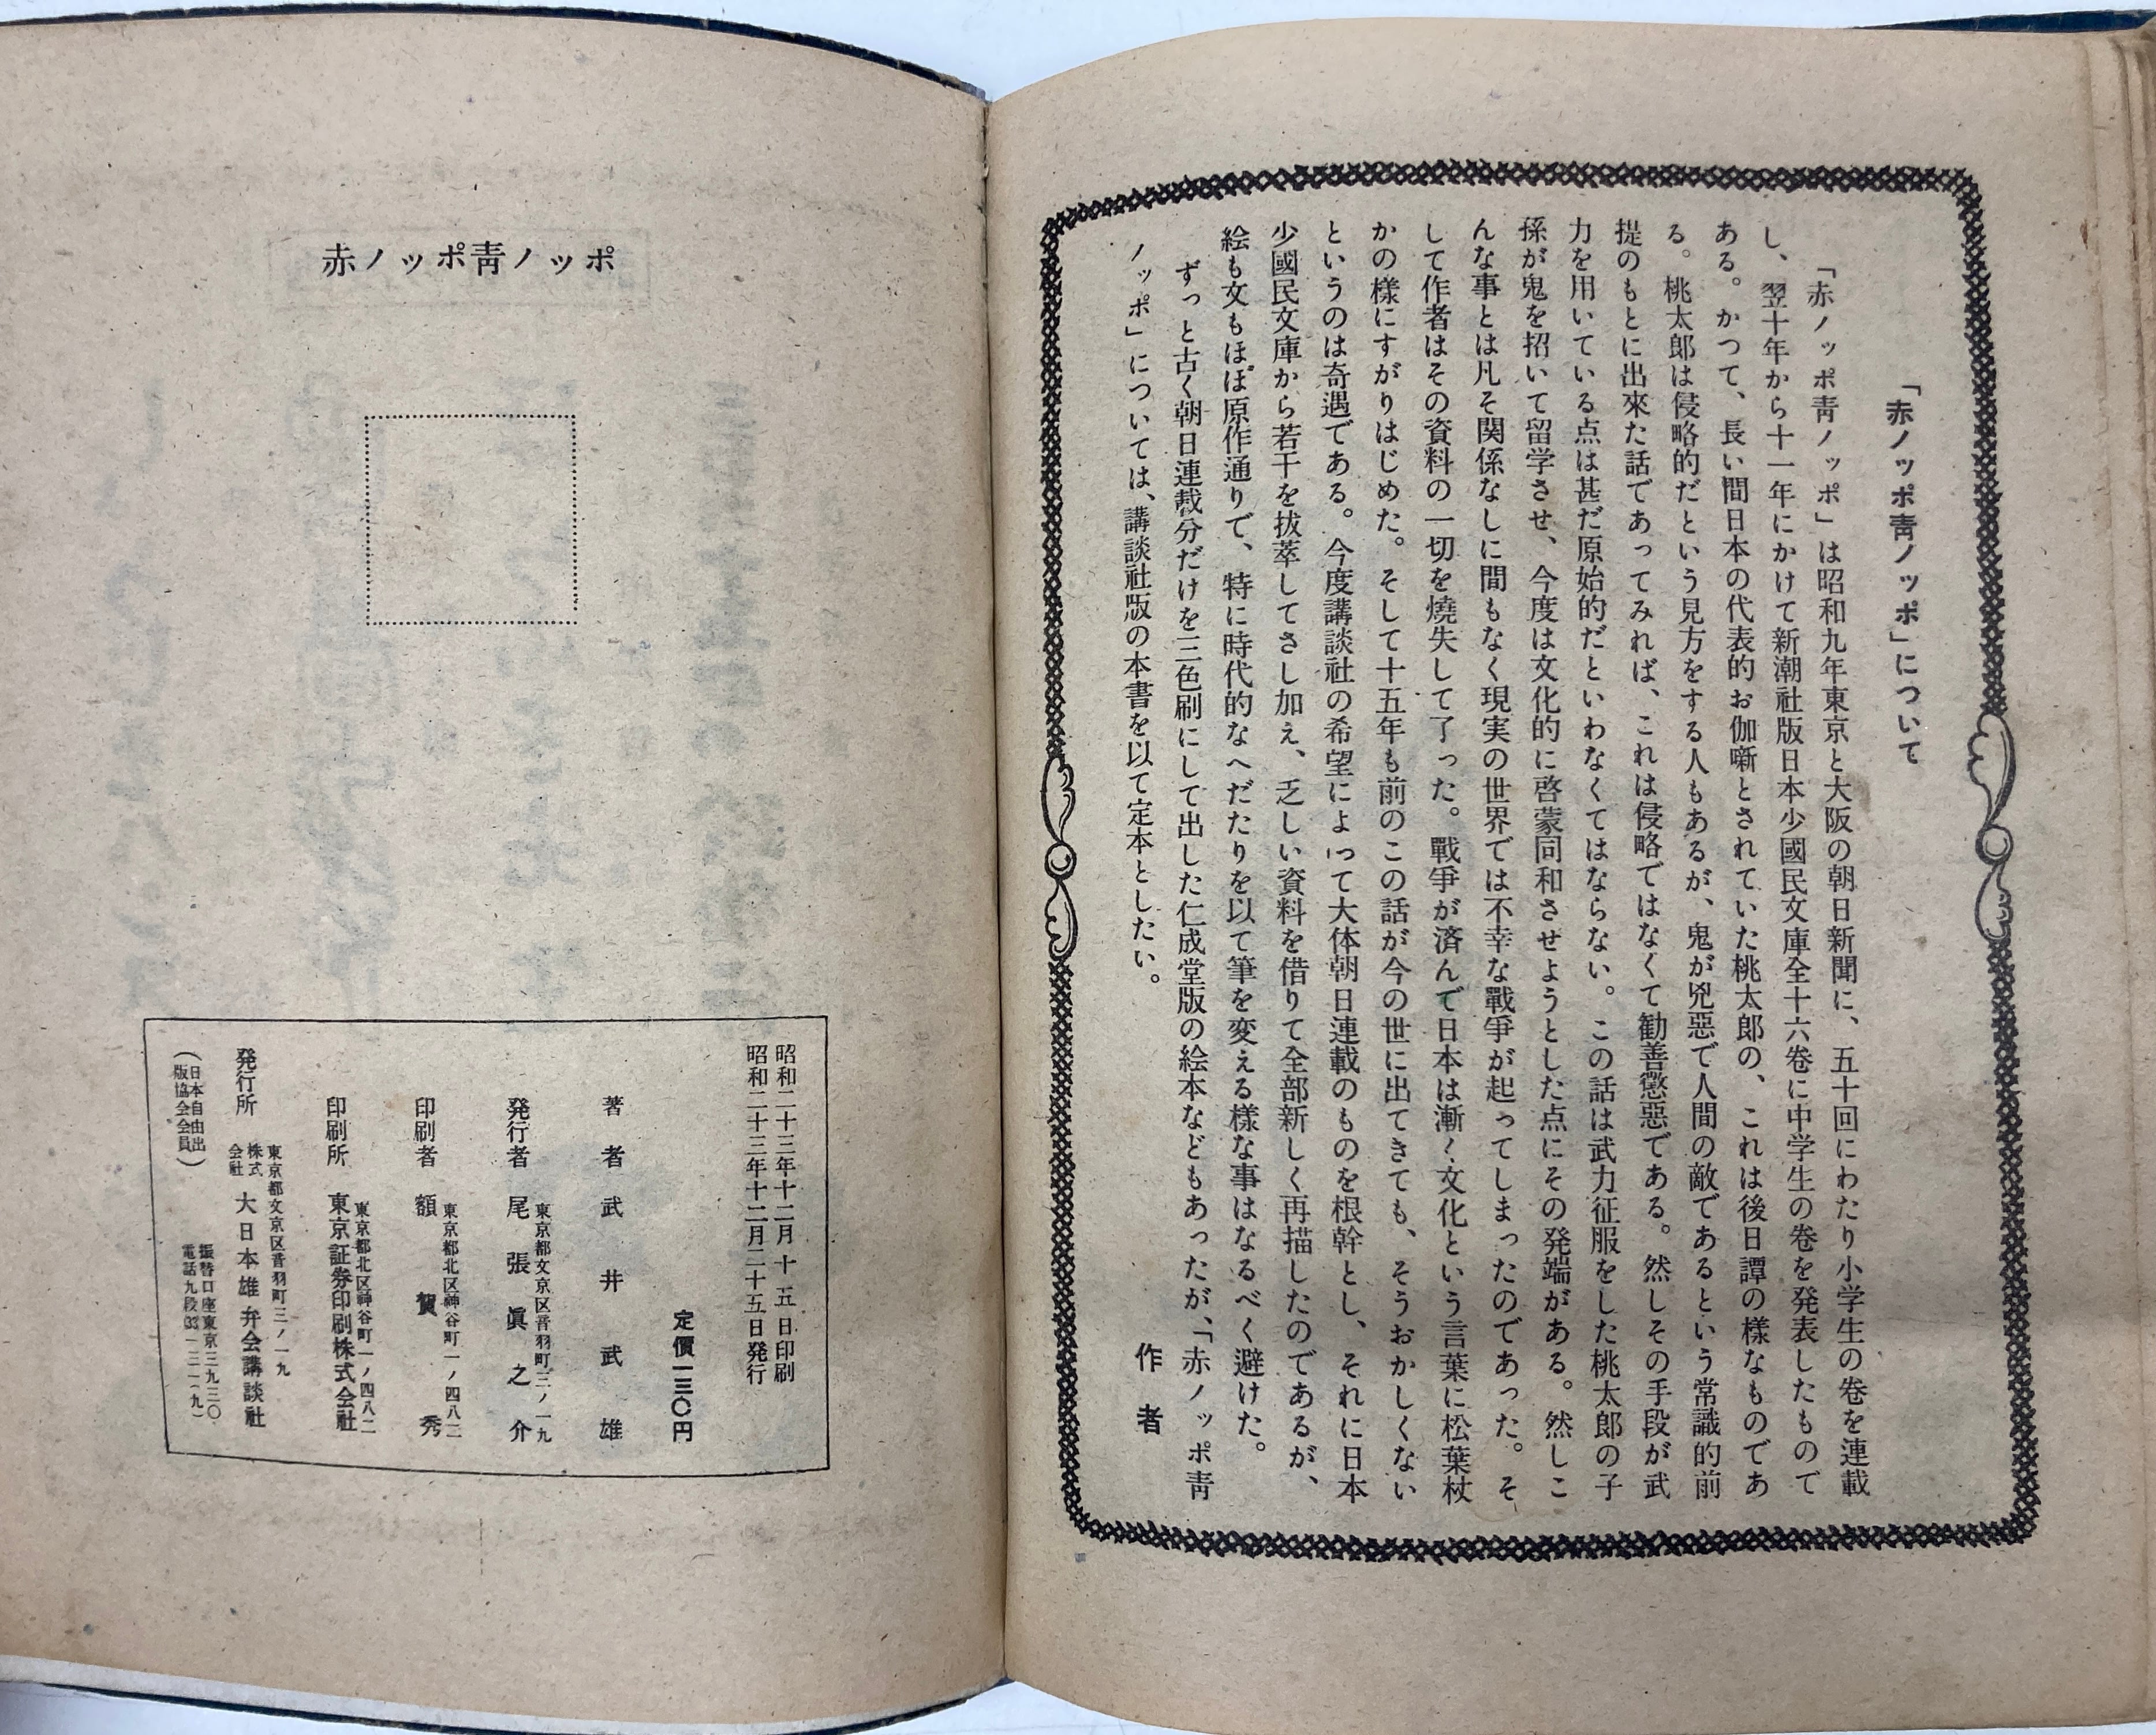 「赤ノッポ靑ノッポ」について
「赤ノッポ靑ノッポ」は昭和九年東京と大阪の朝日新聞に、五十回にわたり小学生の巻を連載
し、翌十年から十一年にかけて新潮社版日本少國民文庫全十六巻に中学生の巻を発表したもので
ある。かつて、長い間日本の代表的お伽噺とされていた桃太郎の、これは後日譚の様なものであ
る。桃太郎は侵略的だという見方をする人もあるが、鬼が兇惡で人間の敵であるという常識的前
提のもとに出來た話であってみれば、これは侵略ではなくて勧善懲惡である。然しその手段が武
力を用いている点は甚だ原始的だといわなくてはならない。この話は武力征服をした桃太郎の子
孫が鬼を招いて留学させ、今度は文化的に啓蒙同和させようとした点にその発端がある。然しこ
んな事とは凡そ関係なしに間もなく現実の世界では不幸な戰爭が起ってしまったのであった。そ
して作者はその資料の一切を燒失して了った。戰爭が済んで日本は漸く文化という言葉に松葉杖
かの様にすがりはじめた。そして十五年も前のこの話が今の世に出てきても、そうおかしくない
というのは奇遇である。今度講談社の希望によって大体朝日連載のものを根幹とし、それに日本
少國民文庫から若干を抜萃してさし加え、乏しい資料を借りて全部新しく再描したのであるが、
絵も文もほぼ原作通りで、特に時代的なへだたりを以て筆を変える様な事はなるべく避けた。
ずっと古く朝日連載分だけを三色刷にして出した仁成堂版の絵本などもあったが、「赤ノッポ靑
ノッポ」については、講談社版の本書を以て定本としたい。
作者
赤ノッポ靑ノッポ
昭和二十三年十二月十五日印刷
昭和二十三年十二月二十五日発行
定價一三〇円
著者 武井武雄
東京都文京区音羽町三ノ一九
発行者 尾張眞之介
東京都北区神谷町一ノ四八二
印刷者 額賀秀
東京都北区神谷町一ノ四八二
印刷所 東京証券印刷株式会社
東京都文京区音羽町三ノ一九
発行所 株式会社 大日本雄弁会講談社
（日本自由出版協会会員）
振替口座東京三九三〇
電話九段(33)一三一(九)